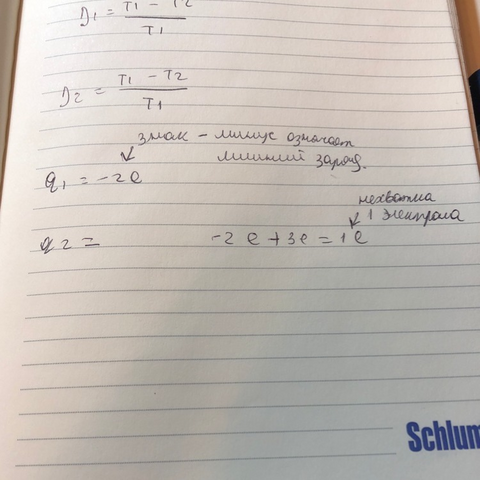 η₁ = T₁ - T₂ / T₁
η₂ = T₁ - T₂ / T₁
знак - минус означает
лишний заряд.
q₁ = -2e
нехватка
1 электрона
q₂ = -2e + 3e = 1e
Schlum